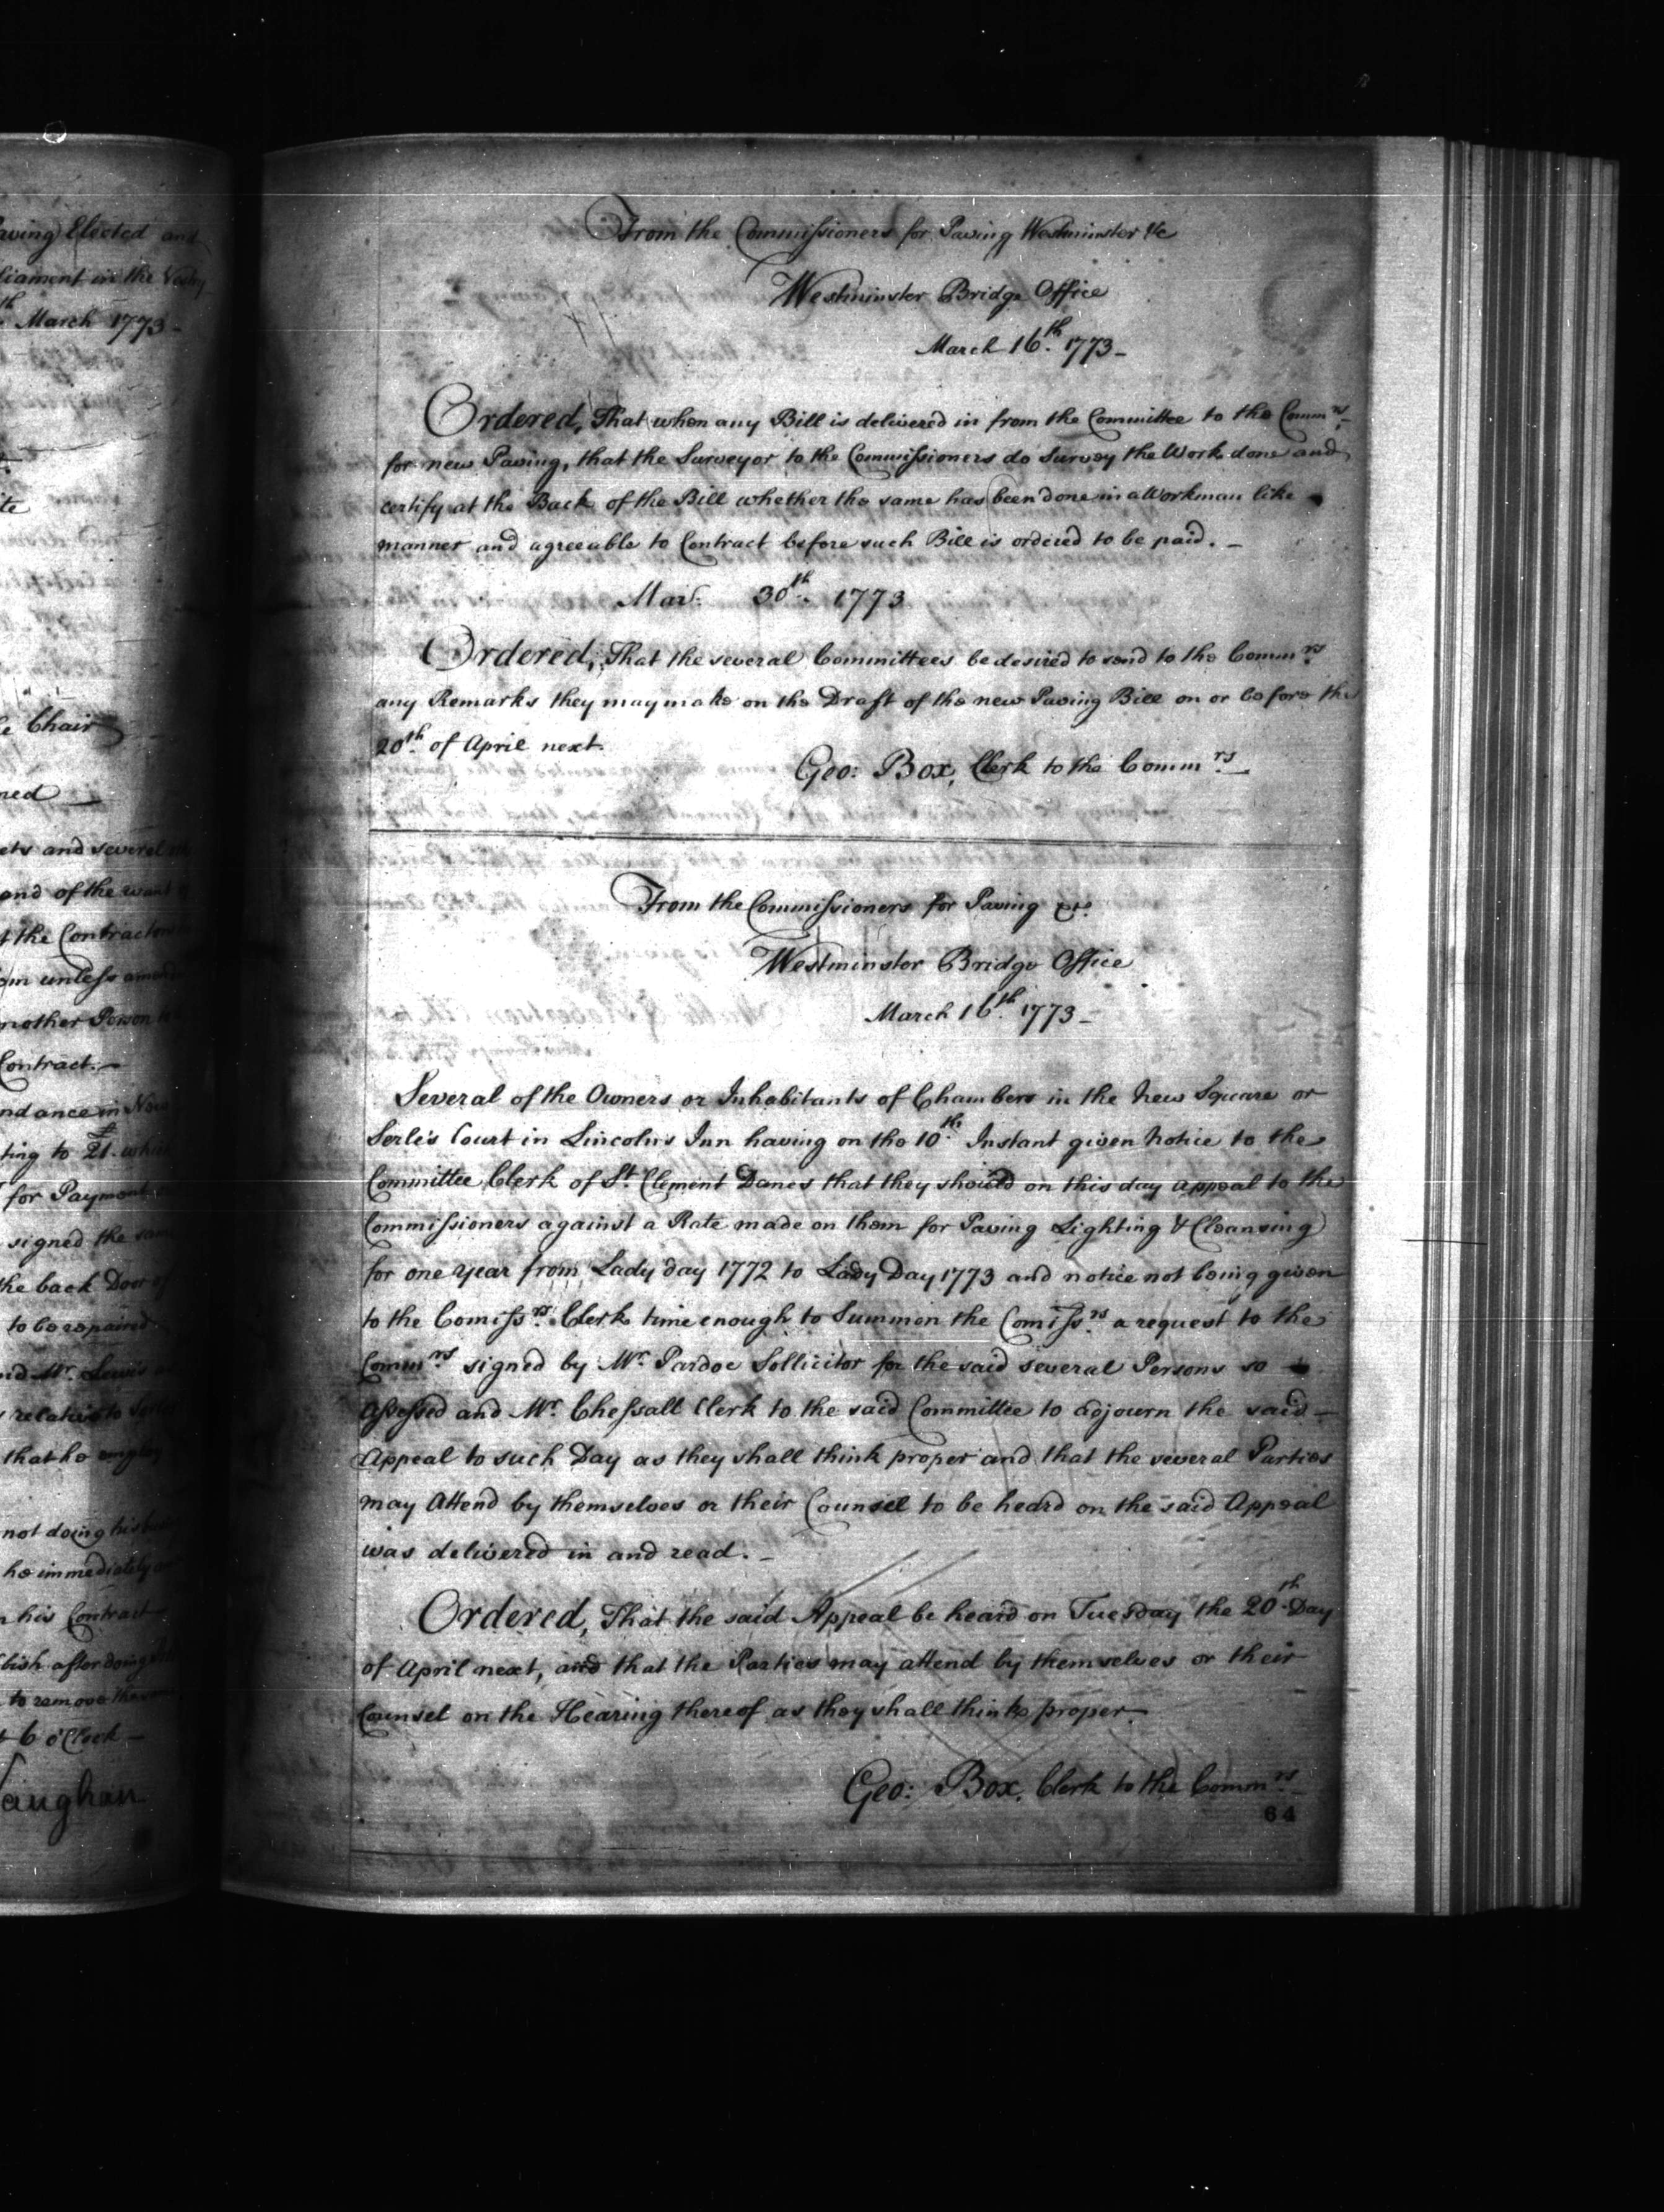 aving Elected and
liament in the Vestry
th March 1773 -
te
e Chair
ned
ets and several
and of the want
t the Contractor
om unless
nother Person
Contract. -
ndance in
ting to 21
for Payment
signed the
the back Door of
to be repaired
id Mr. Lewis
relative to
that he
not doing his
he immediately
n his Contract
bish after doing
to remove the
t 6 o'Clock -
aughan
From the Commissioners for Paving Westminster &c
Westminster Bridge Office
March 16th. 1773 -
Ordered, That when any Bill is delivered in from the Committee to the Commrs. -
for new Paving, that the Surveyor to the Commissioners do Survey the Work done and
certify at the Back of the Bill whether the same has been done in a Workman like -
manner and agreeable to Contract before such Bill is ordered to be paid. -
Mar. 30th. 1773
Ordered, That the several Committees be desired to send to the Commrs.
any Remarks they may make on the Draft of the new Paving Bill on or before the
20th. of April next.
Geo: Box, Clerk to the Commrs. -
From the Commissioners for Paving &c.
Westminster Bridge Office
March 16th. 1773 -
Several of the Owners or Inhabitants of Chambers in the New Square or
Serle's Court in Lincolns Inn having on the 10th. Instant given Notice to the
Committee Clerk of St. Clement Danes that they should on this day appeal to the
Commissioners against a Rate made on them for Paving Lighting & Cleansing
for one year from Lady day 1772 to Lady Day 1773 and notice not being given
to the Comissrs. Clerk time enough to Summon the Comissrs. a request to the
Commrs. signed by Mr. Pardoe Sollicitor for the said several Persons so -
Assessed and Mr. Chessall Clerk to the said Committee to adjourn the said -
Appeal to such Day as they shall think proper and that the several Parties
may Attend by themselves or their Counsel to be heard on the said Appeal
was delivered in and read. -
Ordered, That the said Appeal be heard on Tuesday the 20th. Day
of April next, and that the Parties may attend by themselves or their
Counsel on the Hearing thereof as they shall think proper
Geo: Box, Clerk to the Commrs. -
64